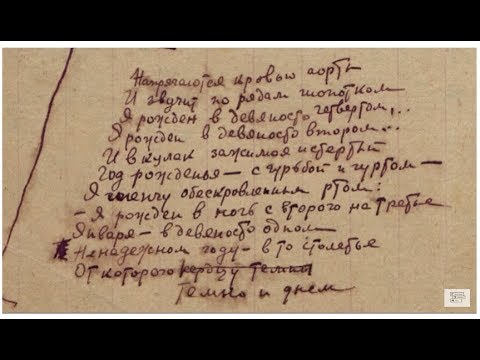 Напрягаются кровью аорты
И звучит по рядам шопотком
Я рожден в девяносто четвертом,..
Я рожден в девяносто втором...
И в кулак зажимая истертый
Год рожденья – с гурьбой и гуртом –
Я шепчу обескровленным ртом:
– Я рожден в ночь с второго на третье
Января – в девяносто одном
Ненадежном году – в то столетье
От которого темни
Темно и днем